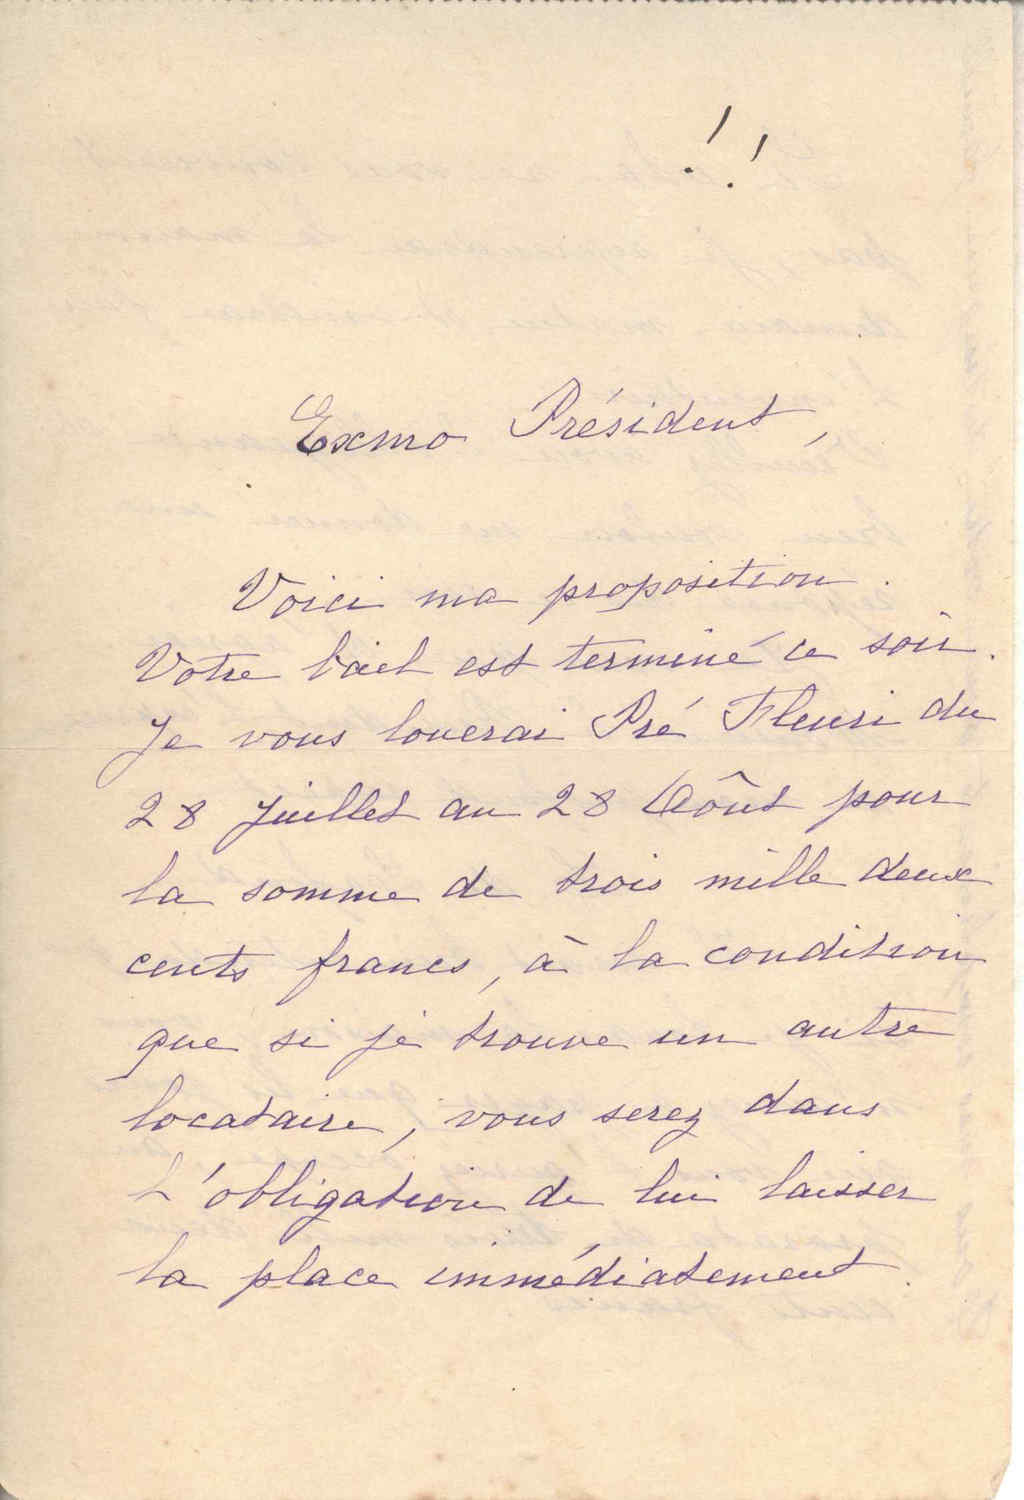 ! !
Exmo Président,
Voici ma proposition.
Votre bail est terminé ce soir.
Je vous louerai Pré Fleuri du
28 Juillet au 28 Aôut pour
la somme de trois mille deux
cents francs, à la condition
que si je trouve un autre
locataire, vous serez dans
L'obligation de lui laisser
la place immédiatement.